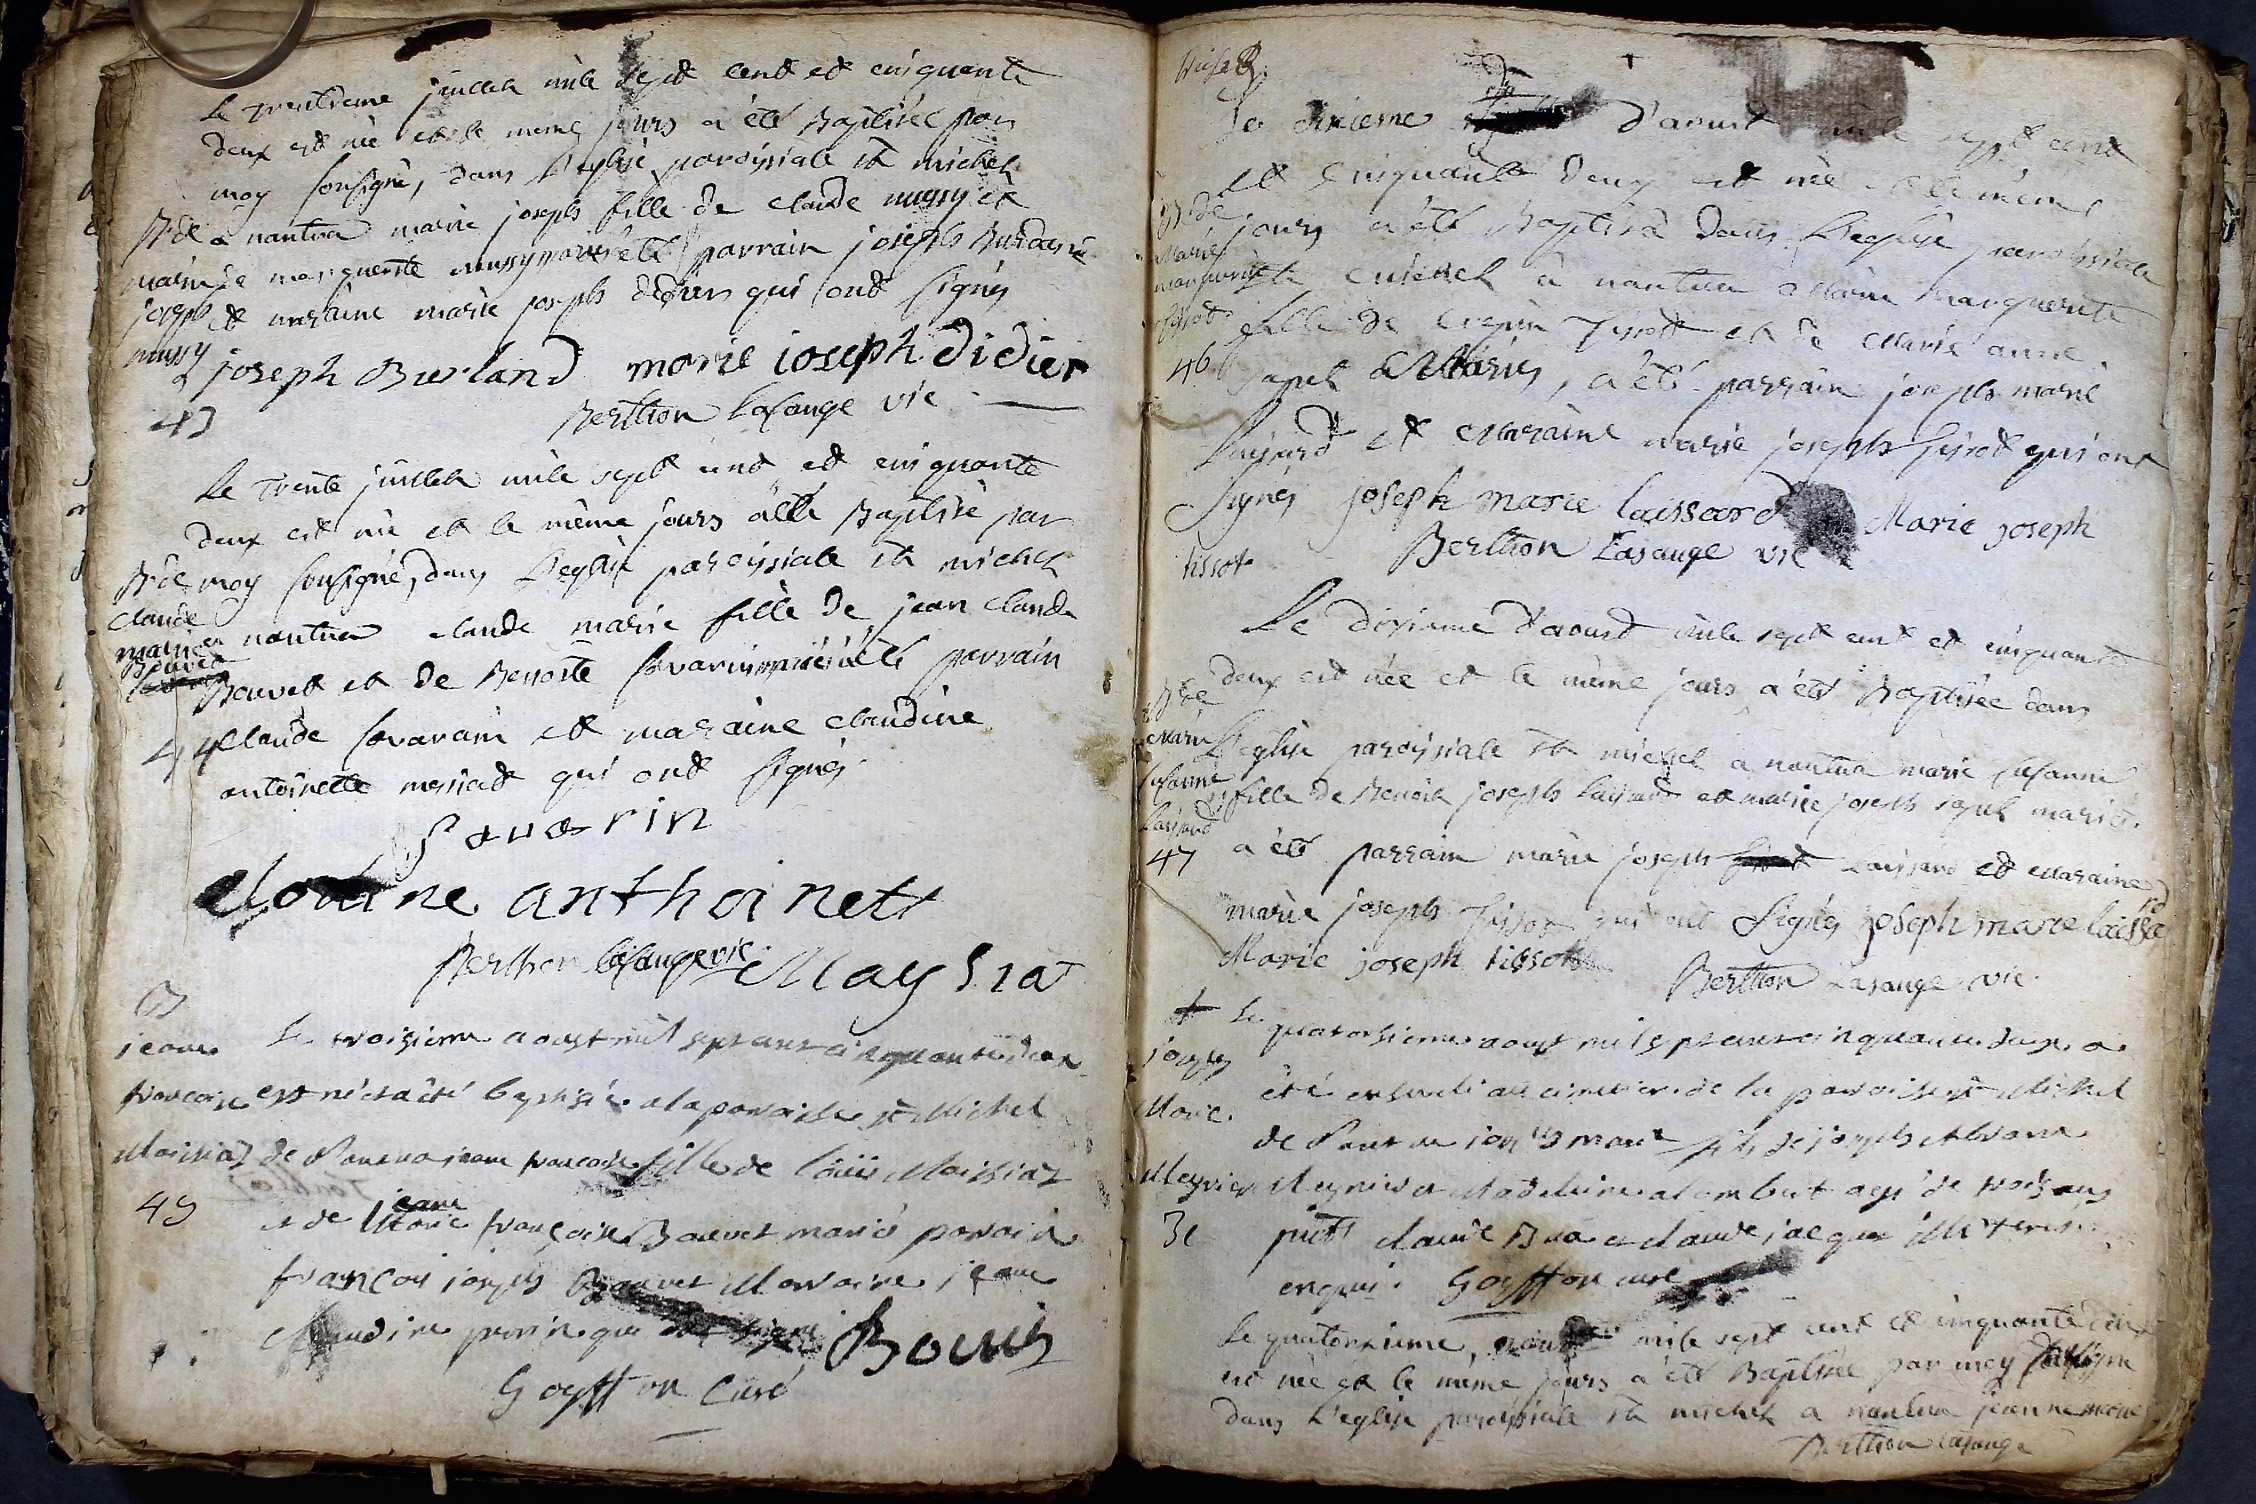 Le trentieme juillet mile sept cent et cinquante
deux est née et le meme jours a été Baptisée par
moy sousigné, dans l'eglise paroissiale st michel
B. de a nantua marie joseph fille de claude mussy et
marie de marguerite mussy mariés été parrain joseph
joseph et maraine marie joseph qui ont signés
mussy joseph Burland marie ioseph didier
43 Berthon Lasauge vic
Le trente juillet mile sept cent et cinquante
deux est née et le même jours a été Baptisé par
B. de moy sousigné, dans L'eglise paroissiale st michel
claude
marie a nantua claude marie fille de jean claude
Bouvet Bouvet et de Benoite savarin mariés a été parrain
44 claude savarain et maraine claudine
antoinette messiat qui ont signés
Savarin
clodine anthoinett
Berthon Lasauge vic Maysiat
B
jeane Le troisieme aoust mil sept cent cinquante deux
francoise est né et a été baptisée a la paroisse st Michel
Maissiaz de Nantua jeane francoise fille de Loüis Maissiaz
45 et de jeane francoise Bouvet mariés parain
françois joseph Bouvet Maraine jeane
claudine perrin qui
Bouvet
Goyffon Curé
Le dixieme d'aoust mile sept cent
et cinquante deux est née et le même
B. de jours a été Baptisée dans L'eglise paroissiale
Marie
marguerite st michel à nantua Marie marguerite
tissot fille de tissot et de Marie anne
46 Sapel Mariés, a été parrain joseph marie
Laissard et Maraine marie joseph tissot qui ont
signés joseph marie laissard Marie joseph
tissot Berthon Lasauge vic
Le dixieme d'aoust mile sept cent et cinquante
deux est née et le même jours a été Baptisée dans
B. de
marie L'eglise paroissiale st michel a nantua marie susanne
susanne fille de Benoit joseph laissard et marie joseph mariés
Laissard
47 a été parrain marie joseph Laissard et Maraine
marie joseph tissot qui ont signés joseph marie laissard
Marie joseph tissot Berthon Lasauge vic
Le quatorsieme aoust mil sept cent cinquante deux a
joseph été enseveli au cimetier de la paroisse st Michel
Marie de Nantua joseph marie fils de joseph
Meynier Meynier et Madeleine alombert agé de trois ans
31 put claude et claude jacquet
enquis. Goyffon curé
Le quatorsieme aoust mile sept cent et cinquante deux
est née et le même jours a été Baptisée par moy sousigné
dans L'eglise paroissiale st michel a nantua jeanne marie
Berthon Lasauge